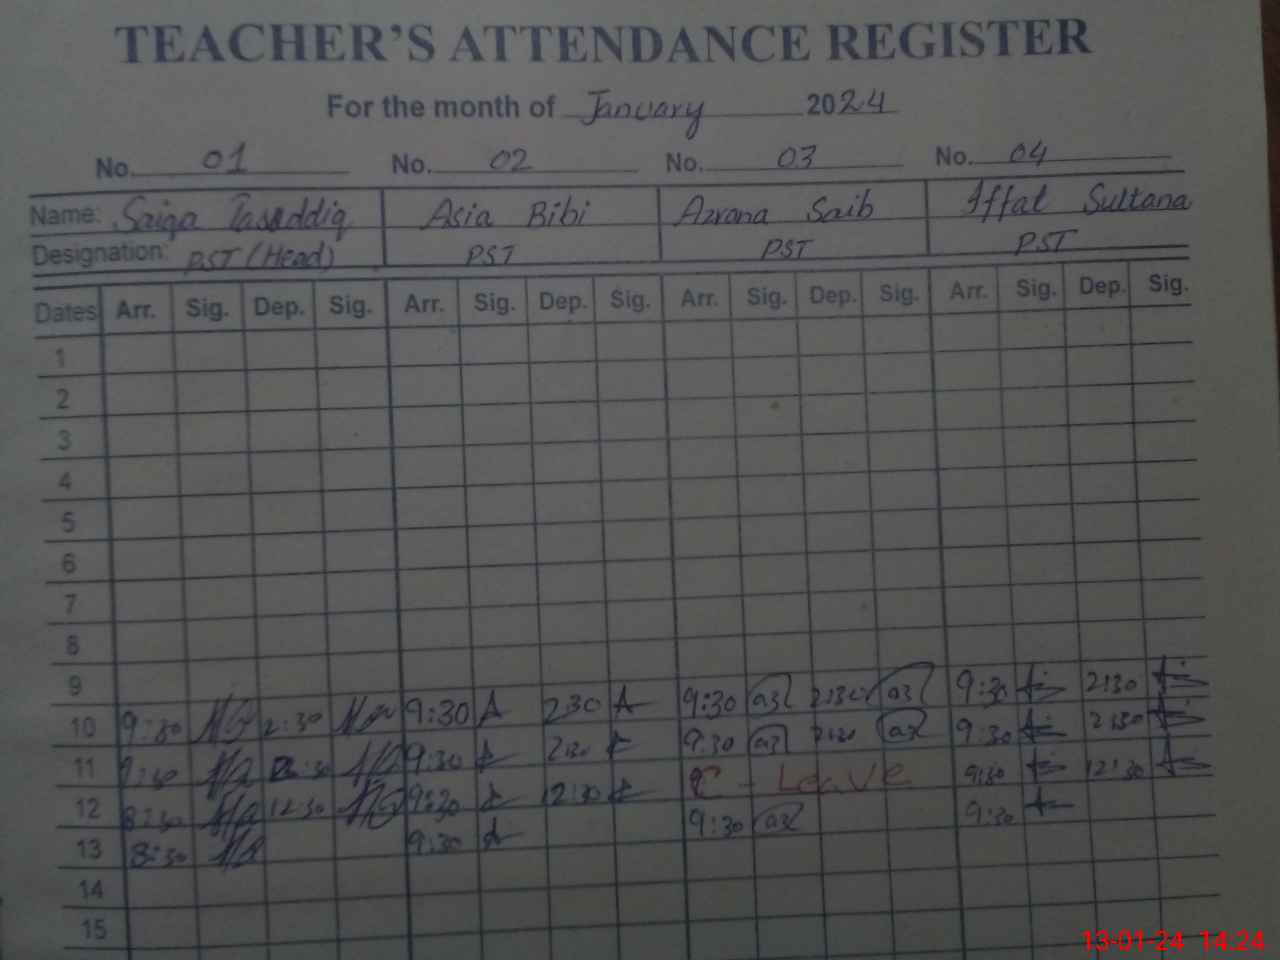 TEACHER'S ATTENDANCE REGISTER
For the month of January 2024
No. 01 No. 02 No. 03 No. 04
Name: Saiqa Tasaddiq Asia Bibi Azrana Saib Iffat Sultana
Designation: PST (Head) PST PST PST
Dates Arr. Sig. Dep. Sig. Arr. Sig. Dep. Sig. Arr. Sig. Dep. Sig. Arr. Sig. Dep. Sig.
1
2
3
4
5
6
7
8
9
10 9:30 2:30 9:30 A 230 A 9:30 2:30 9:30 2:30
11 9:30 2:30 9:30 2:30 9:30 2:30 9:30 2:30
12 8:30 12:30 9:30 12:30 C - Leave 9:30 12:30
13 8:30 9:30 9:30 9:30
14
15
13-01-24 14:24